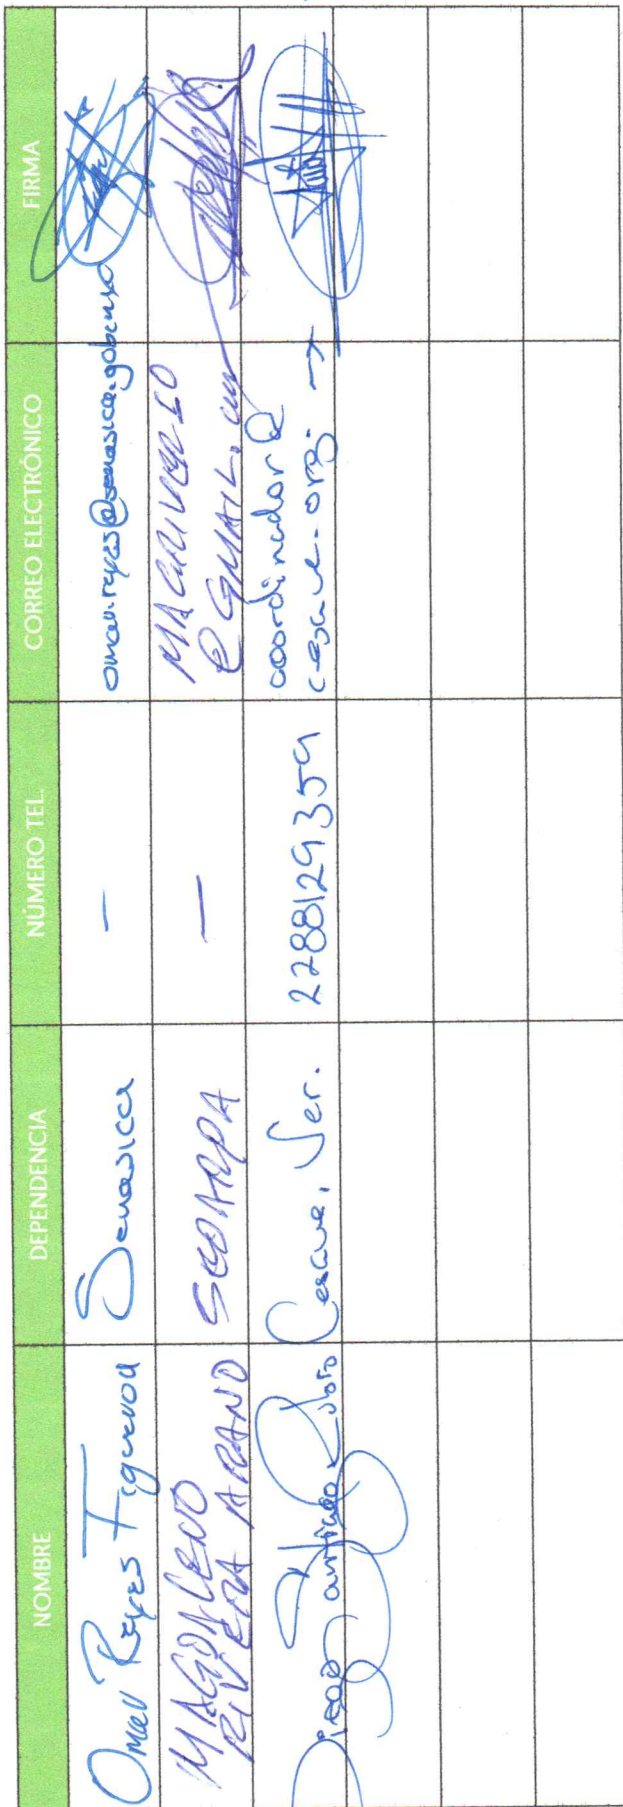 NOMBRE DEPENDENCIA NÚMERO TEL. CORREO ELECTRÓNICO FIRMA
Omar Reyes Figueroa Senasica — omar.reyes@senasica.gob.mx
MAGDALENO SEDARPA — MAGRIVERIO
RIVERA ARANO @GMAIL.com
Diego Santiago Cesave, Ver. 2288129359 coordinador@
cesave.org. →